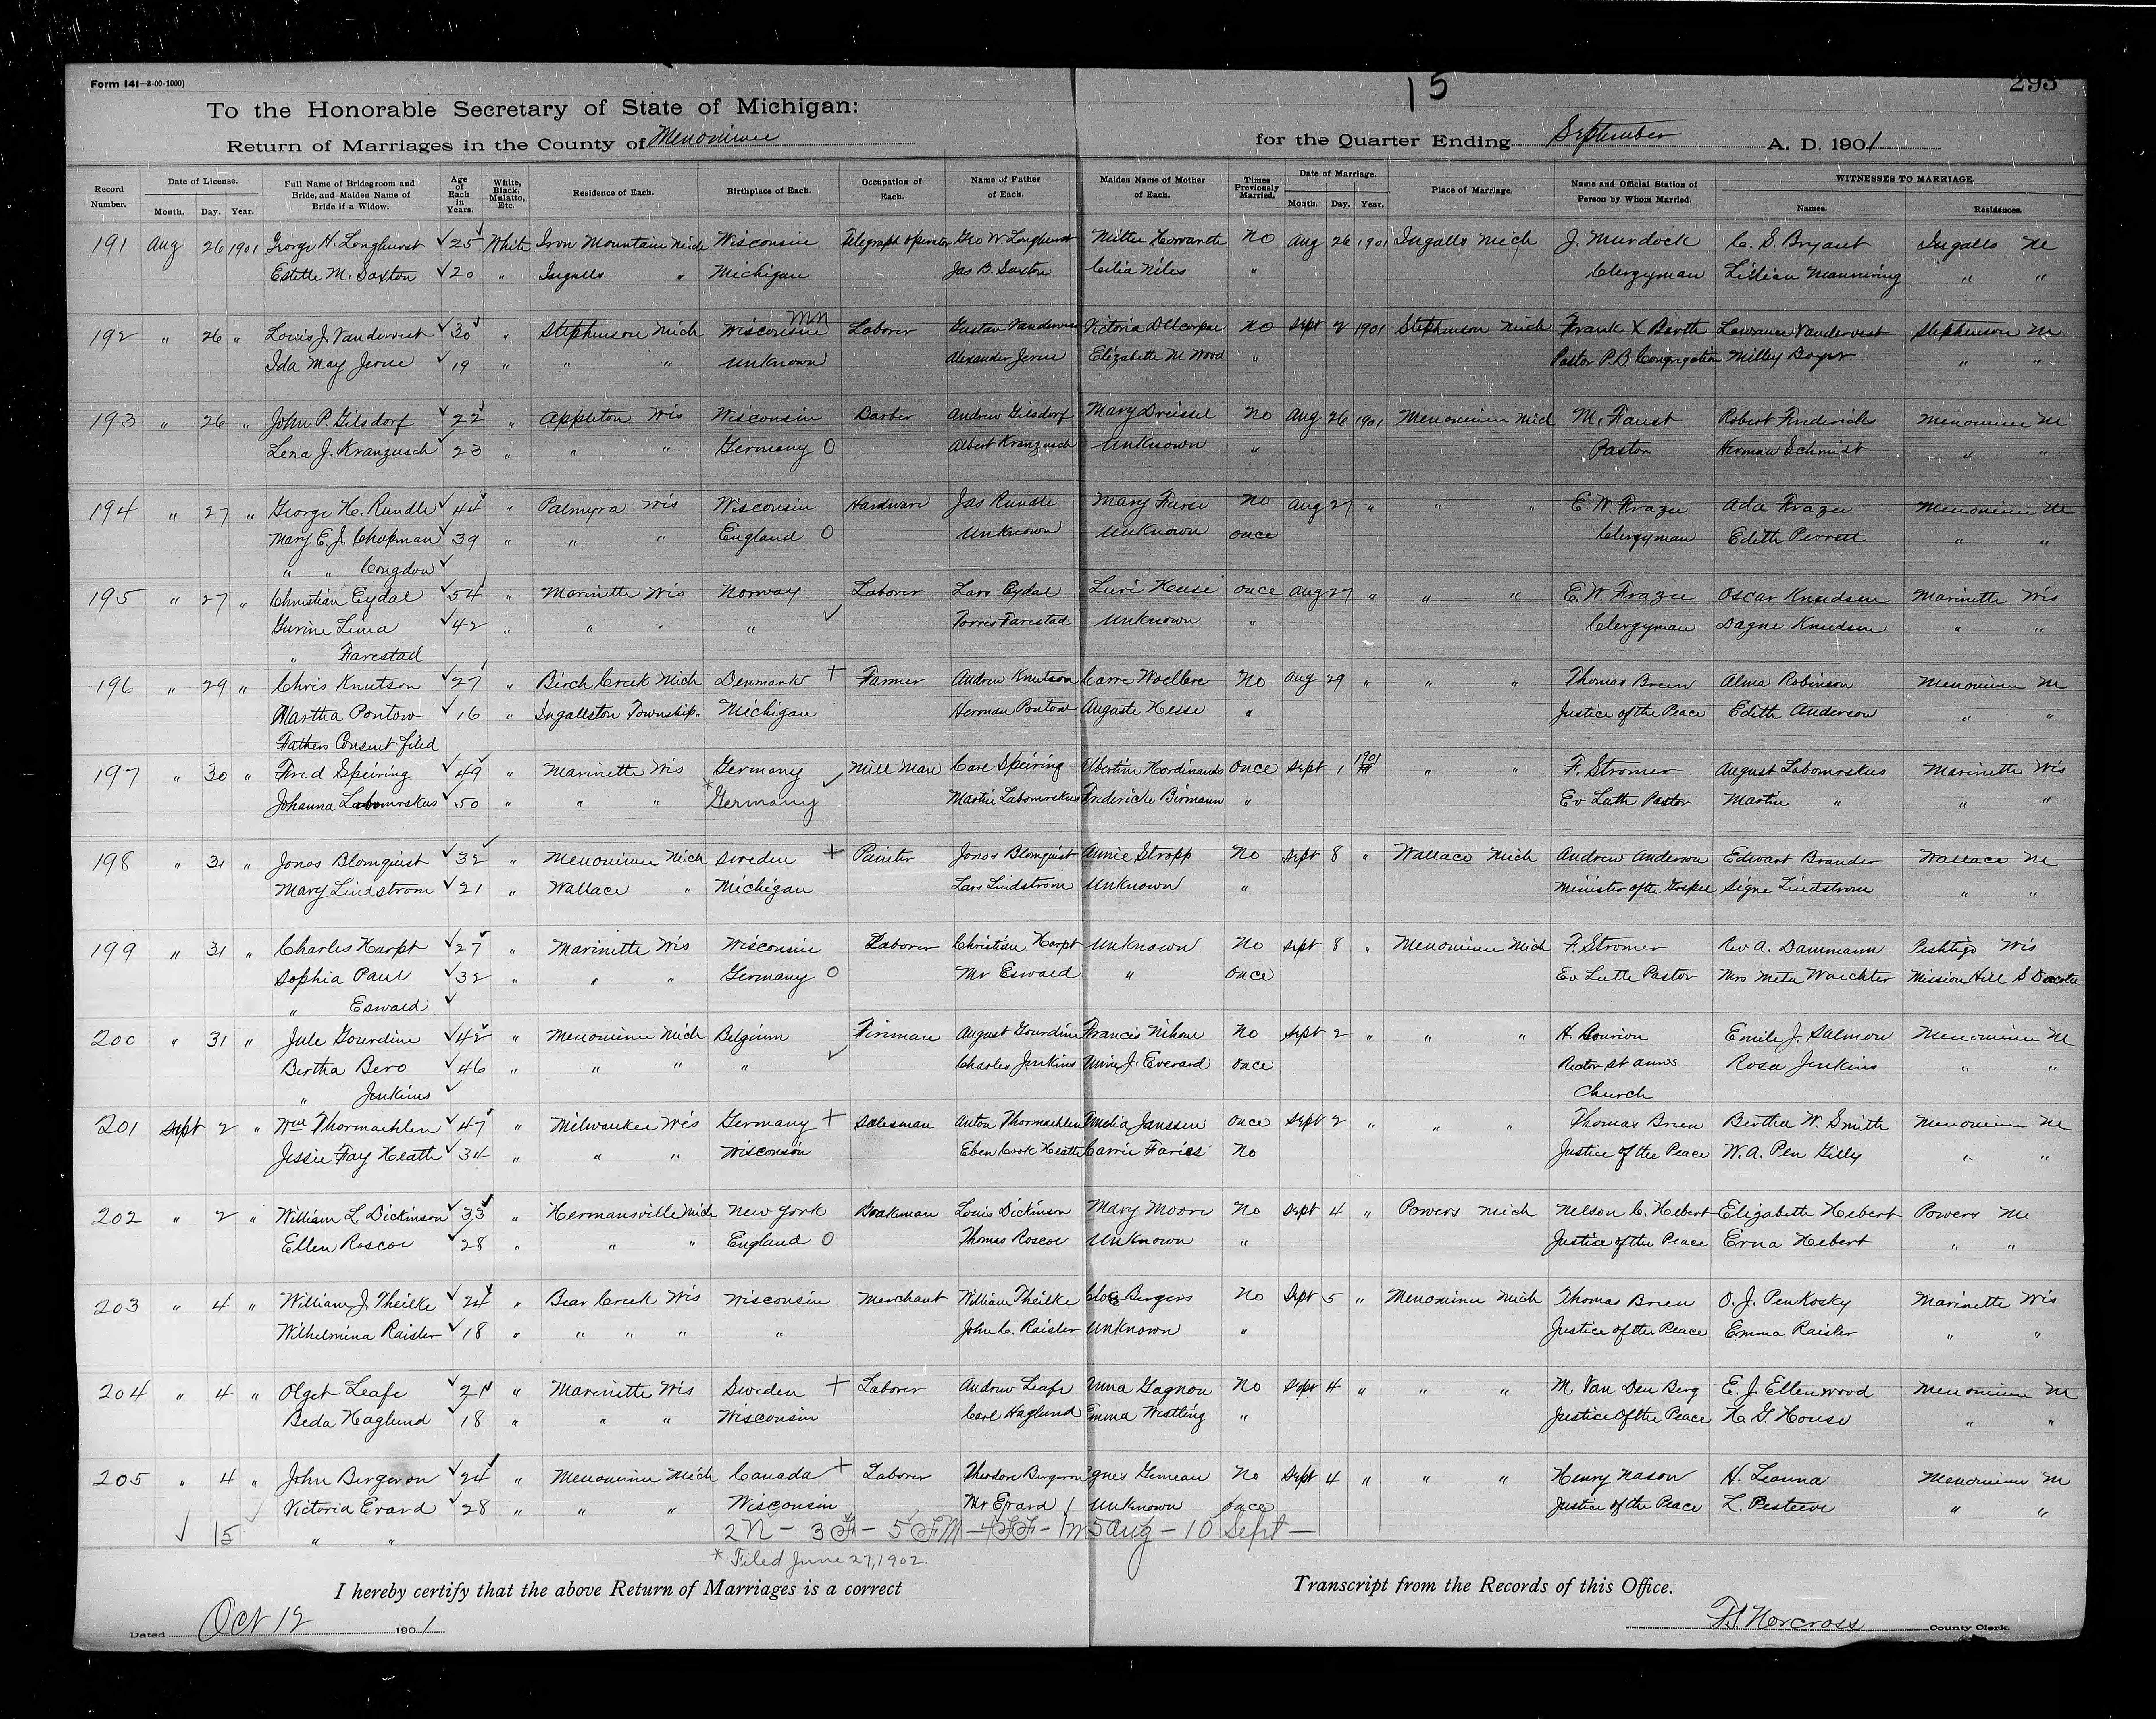 Form 141—3-00-1000)
15
293
To the Honorable Secretary of State of Michigan:
Return of Marriages in the County of Menominee for the Quarter Ending September A. D. 1901
Record Number. Date of License. Month. Day. Year. Full Name of Bridegroom and Bride, and Maiden Name of Bride if a Widow. Age of Each in Years. White, Black, Mulatto, Etc. Residence of Each. Birthplace of Each. Occupation of Each. Name of Father of Each. Maiden Name of Mother of Each. Times Previously Married. Date of Marriage. Month. Day. Year. Place of Marriage. Name and Official Station of Person by Whom Married. WITNESSES TO MARRIAGE. Names. Residences.
191 Aug 26 1901 George H. Longhurst 25 White Iron Mountain Mich Wisconsin Telegraph Operator Geo W Longhurst No Aug 26 1901 Ingalls Mich J. Murdock C. S. Bryant Ingalls M
Estelle M. Saxton 20 " Ingalls " Michigan Jas B. Saxton Celia Niles " Clergyman Lillian Manniving " "
192 " 26 " Louis J. Vandervest 30 " Stephenson Mich Wisconsin Laborer Gustav Vandervest Victoria No Sept 2 1901 Stephenson Mich Frank X Barth Lawrence Vandervest Stephenson M
Ida May Jerue 19 " " " Unknown Alexander Jerue Elizabeth M Wood " Pastor P.B. Congregation Milley Boyer " "
193 " 26 " John P. Gilsdorf 22 " Appleton Wis Wisconsin Barber Andrew Gilsdorf Mary Dreissel No Aug 26 1901 Menominee Mich M. Faust Robert Frederick Menominee M
Lena J. Kranzusch 23 " " " Germany O Albert Kranzusch Unknown " Pastor Herman Schmidt " "
194 " 27 " George H. Rundle 44 " Palmyra Wis Wisconsin Hardware Jas Rundle Mary Furse No Aug 27 " " " E. W. Frazee Ada Frazee Menominee M
Mary E. J. Chapman 39 " " " England O Unknown Unknown once Clergyman Edith Perrett " "
" " Congdon
195 " 27 " Christian Eydal 54 " Marinette Wis Norway Laborer Lars Eydal once Aug 27 " " " E. W. Frazee Oscar Knudsen Marinette Wis
Gurine Lima 42 " " " " Torris Farestad Unknown " Clergyman Dagne Knudsen " "
" Farestad
196 " 29 " Chris Knutson 27 " Birch Creek Mich Denmark + Farmer Andrew Knutson No Aug 29 " " " Thomas Breen Alma Robinson Menominee M
Martha Pontow 16 " Ingallston Township " Michigan Herman Pontow Auguste Hesse " Justice of the Peace Edith Anderson " "
Fathers Consent filed
197 " 30 " Fred Speiring 49 " Marinette Wis Germany Mill Man Carl Speiring Albertine Hordinands Once Sept 1 1901 " " F. Stromer August Labomrskus Marinette Wis
Johanna Labomrskus 50 " " " *Germany Martin Labomrskus Fredericke Birmann " Ev Luth Pastor Martin " " "
198 " 31 " Jonas Blomquist 32 " Menominee Mich Sweden + Painter Jonas Blomquist Annie Stropp No Sept 8 " Wallace Mich Andrew Anderson Edwart Brander Wallace M
Mary Lindstrom 21 " Wallace " Michigan Lars Lindstrom Unknown " Minister of the Gospel Signe Lindstrom " "
199 " 31 " Charles Harpt 27 " Marinette Wis Wisconsin Laborer Christian Harpt Unknown No Sept 8 " Menominee Mich F. Stromer Rev A. Dammann Peshtigo Wis
Sophia Paul 32 " " " Germany O Mr Eswald " Once Ev Luth Pastor Mrs Meta Waechter Mission Hill S Dacota
" Eswald
200 " 31 " Jule Gourdine 42 " Menominee Mich Belgium Fireman August Gourdine Francis Nihoul No Sept 2 " " " H. Bourion Emile J. Salmon Menominee M
Bertha Bero 46 " " " " Charles Jenkins J. Everard Once Rector St Anns Rosa Jenkins " "
" Jenkins Church
201 Sept 2 " Wm Thormaehlen 47 " Milwaukee Wis Germany + Salesman Anton Thormaehlen Amelia Janssen Once Sept 2 " " " Thomas Breen Bertha W. Smith Menominee M
Jessie Fay Heath 34 " " " Wisconsin Eben Cook Heath Carrie Faries No Justice of the Peace W. A. Pen Gilly " "
202 " 2 " William L. Dickinson 33 " Hermansville Mich New York Brakeman Louis Dickinson Mary Moore No Sept 4 " Powers Mich Nelson C. Hebert Elizabeth Hebert Powers M
Ellen Roscoe 28 " " " England O Thomas Roscoe Unknown " Justice of the Peace Erna Hebert " "
203 " 4 " William J. Theilke 24 " Bear Creek Wis Wisconsin Merchant William Theilke Bergers No Sept 5 " Menominee Mich Thomas Breen O. J. Penkosky Marinette Wis
Wilhelmina Raisler 18 " " " " " John C. Raisler Unknown " Justice of the Peace Emma Raisler " "
204 " 4 " Olget Leafe 21 " Marinette Wis Sweden + Laborer Andrew Leafe Anna Gagnon No Sept 4 " " " M. Van Den Berg E. J. Ellenwood Menominee M
Beda Haglund 18 " " " Wisconsin Carl Haglund Emma Westling " Justice of the Peace H. G. House " "
205 " 4 " John Bergeron 24 " Menominee Mich Canada + Laborer Theodore Bergeron Agnes Gemeau No Sept 4 " " " Henry Nason H. Leanna Menominee M
Victoria Evard 28 " " " Wisconsin Mr Evard Unknown Once Justice of the Peace L. Pesteeve " "
15 " " 2N - 3F - 5FM - 4FF - 1M 5 Aug - 10 Sept -
* Filed June 27, 1902.
I hereby certify that the above Return of Marriages is a correct Transcript from the Records of this Office.
Dated Oct 12 1901 F. J. Norcross County Clerk.